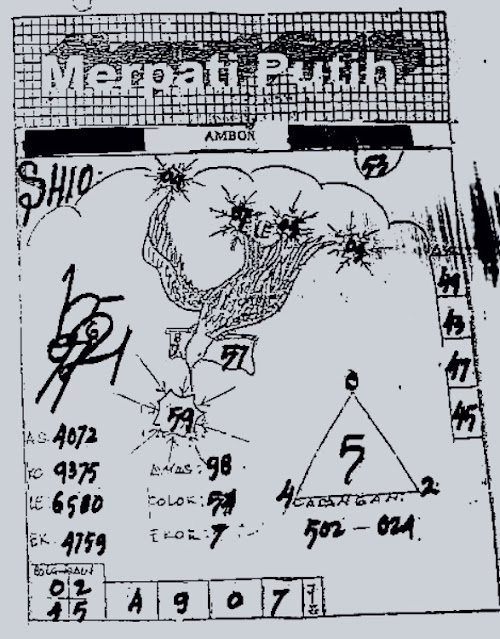 Merpati Putih
AMBON
53
SHIO
LE
49
43
57
47
59
45
0
5
4 2
CADANGAN
502 - 024
AS: 4072
KO: 9375
LE: 6580
EK: 4759
AMAS: 98
COLOK:
EKOR: 7
0 2
4 5
A 9 0 7